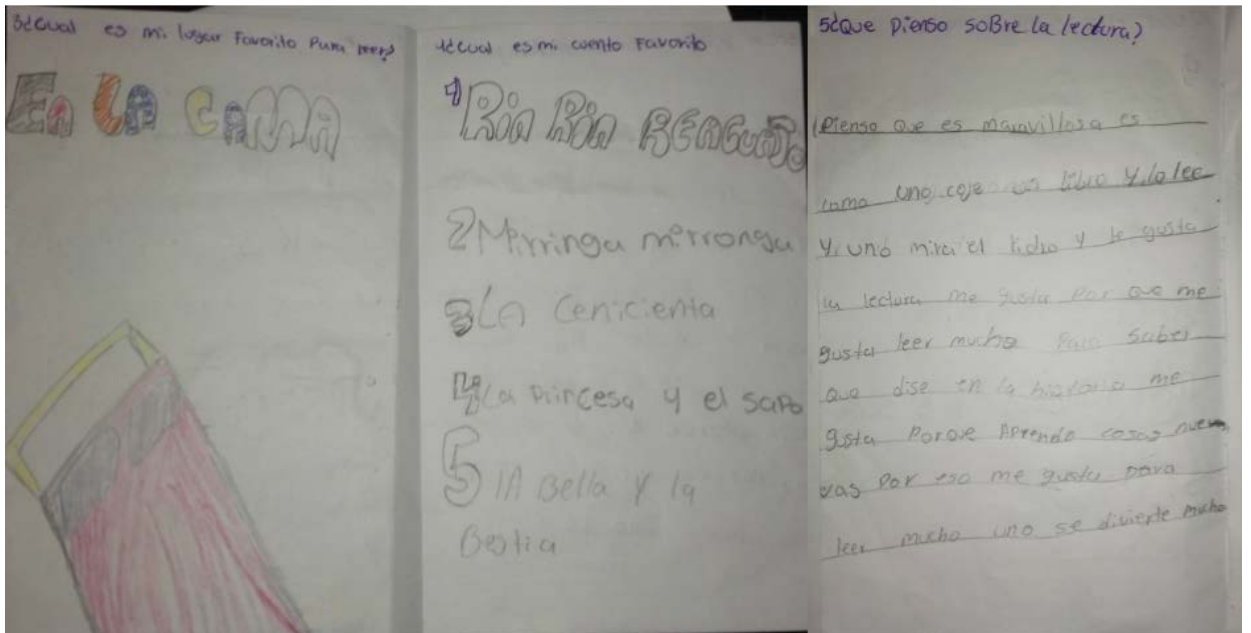 3¿Cual es mi lugar Favorito Para leer?
En LA CAMA
4¿Cual es mi cuento Favorito
1 Rin Rin RENACUAJO
2 Mirringa mirronga
3 LA Cenicienta
4 La Princesa y el sapo
5 lA Bella y la
Bestia
5¿Que Pienso soBre la lectura?
Pienso que es maravillosa es
como uno coje un libro y lo lee
y uno mira el libro y le gusta
la lectura me gusta Por que me
gusta leer mucho Para saber
que dise en la historia me
gusta Porque APrendo cosas nue
vas Por eso me gusta para
leer mucho uno se divierte mucho